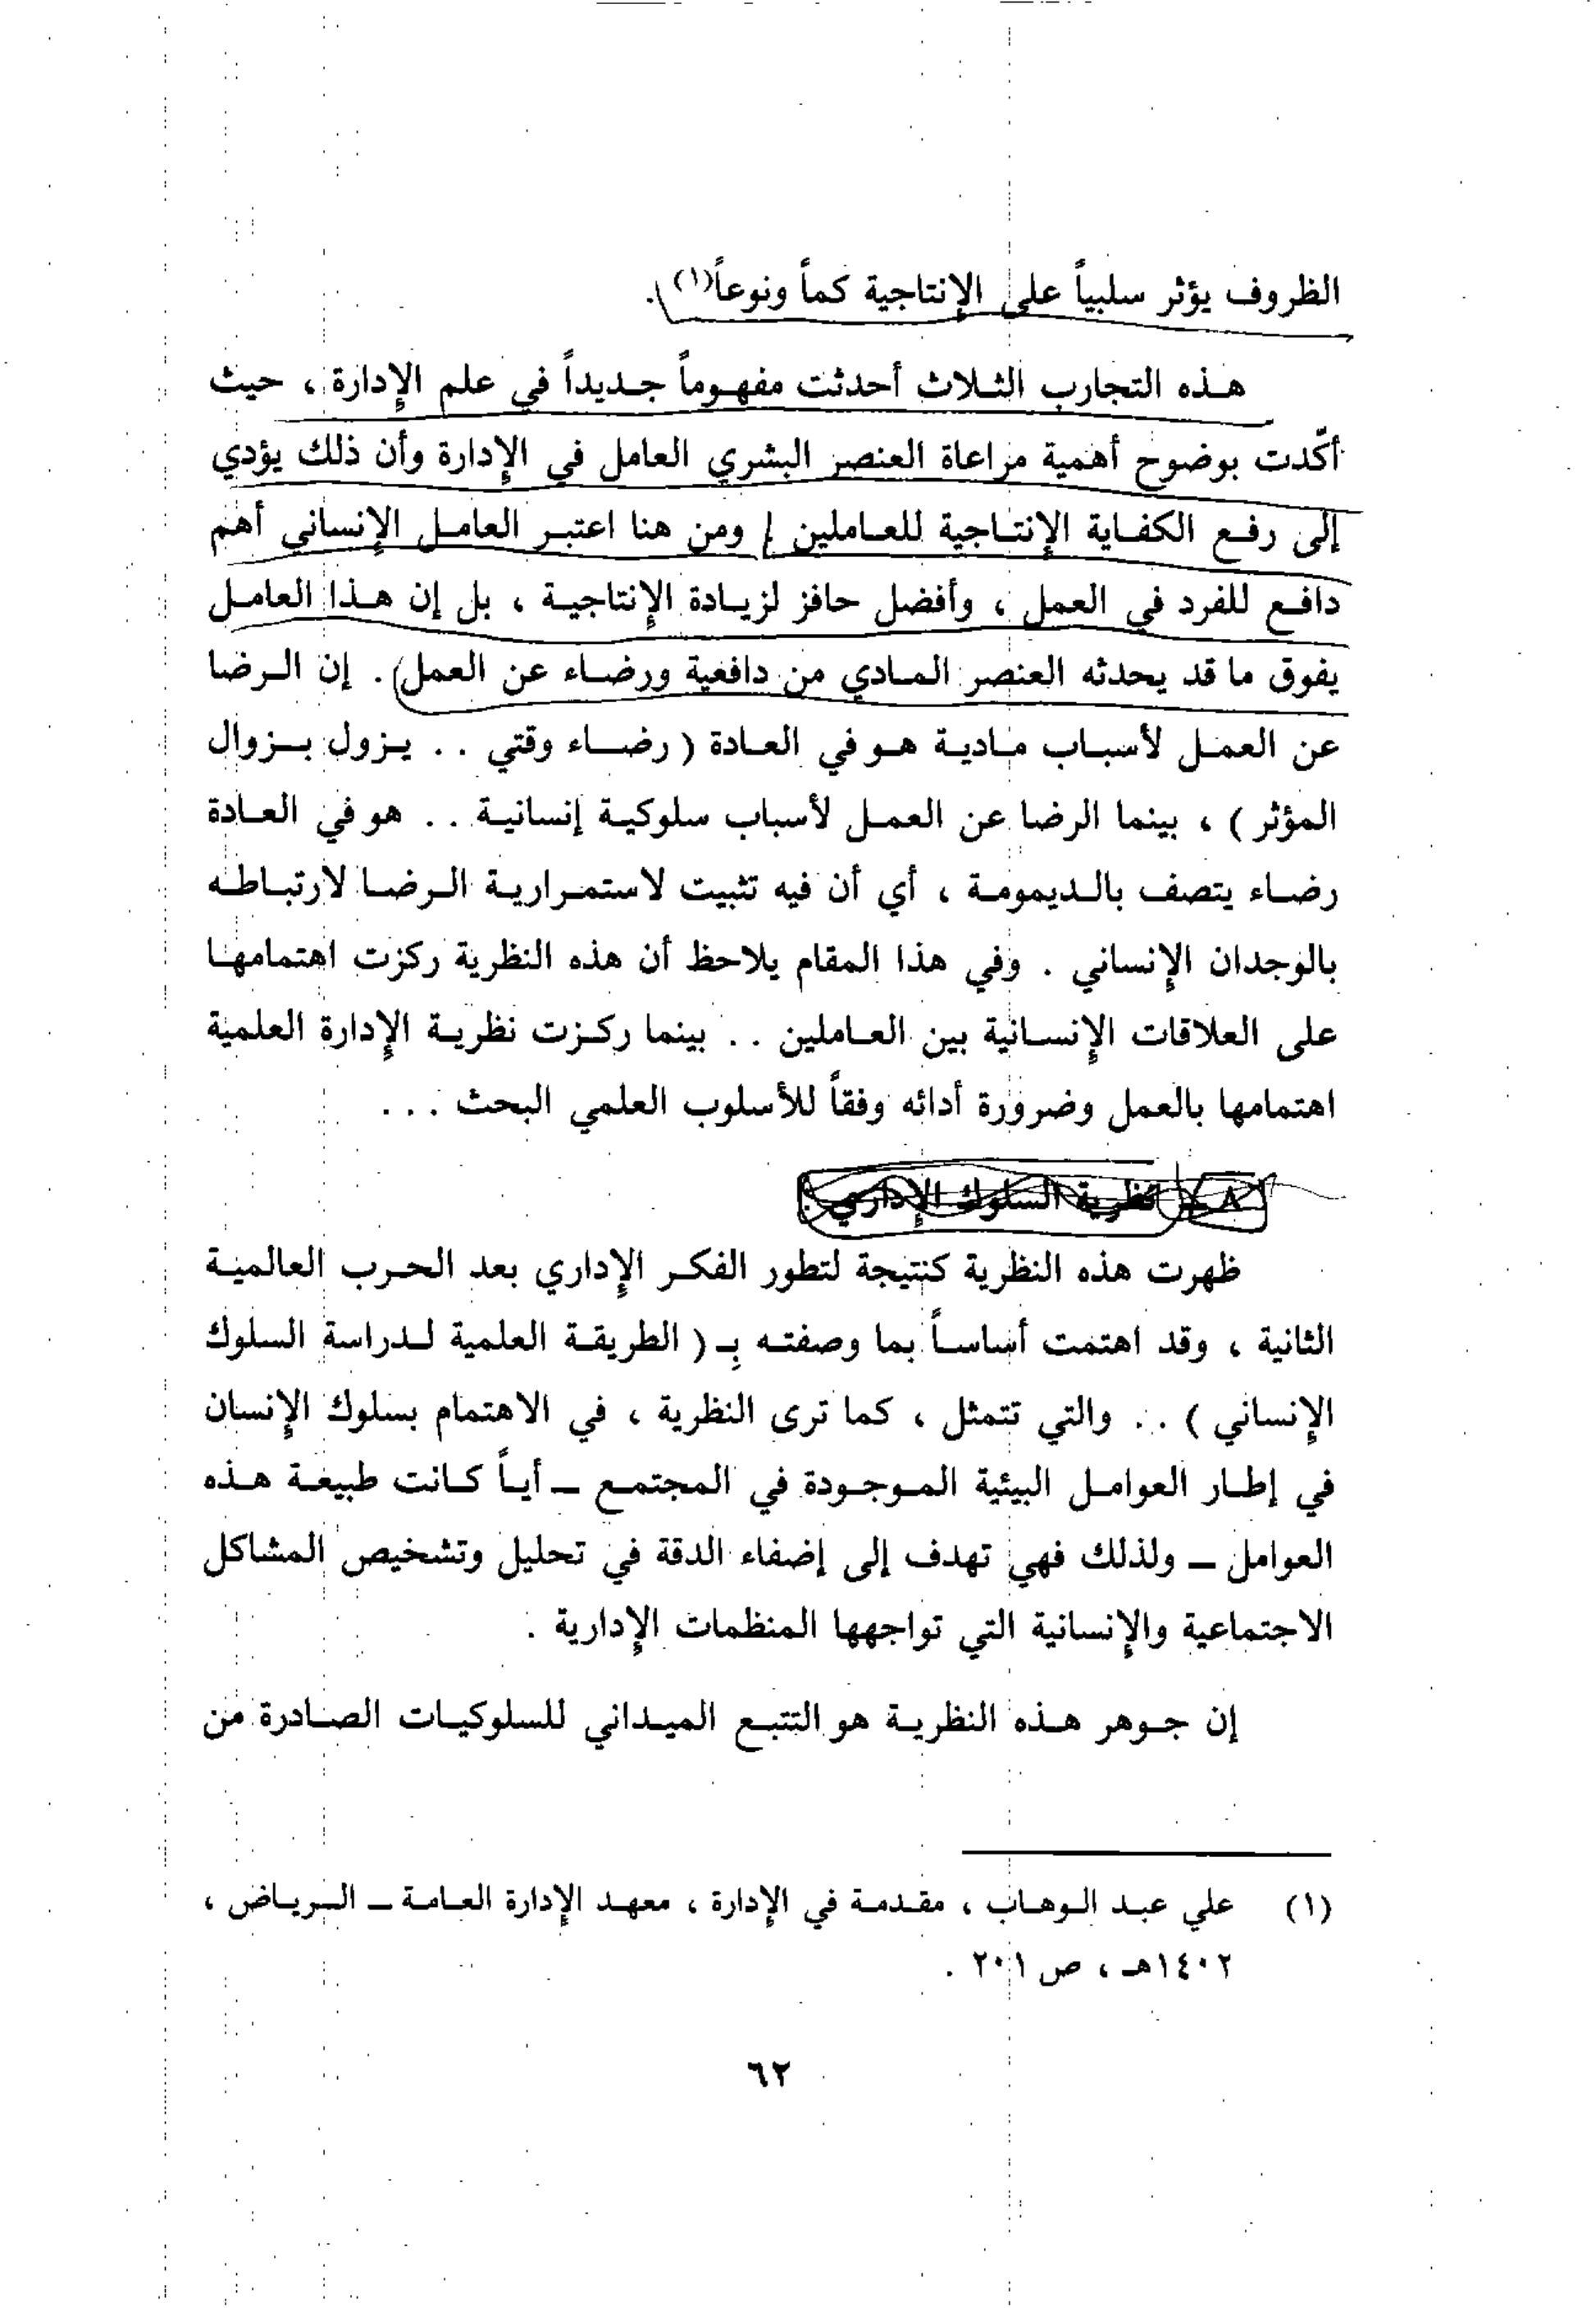 الظروف يؤثر سلبياً على الإنتاجية كماً ونوعاً(١).
هذه التجارب الثلاث أحدثت مفهوماً جديداً في علم الإدارة ، حيث
أكّدت بوضوح أهمية مراعاة العنصر البشري العامل في الإدارة وأن ذلك يؤدي
إلى رفع الكفاية الإنتاجية للعاملين / ومن هنا اعتبر العامل الإنساني أهم
دافع للفرد في العمل ، وأفضل حافز لزيادة الإنتاجية ، بل إن هذا العامل
يفوق ما قد يحدثه العنصر المادي من دافعية ورضاء عن العمل) . إن الرضا
عن العمل لأسباب مادية هو في العادة ( رضاء وقتي . . يزول بزوال
المؤثر ) ، بينما الرضا عن العمل لأسباب سلوكية إنسانية . . هو في العادة
رضاء يتصف بالديمومة ، أي أن فيه تثبيت لاستمرارية الرضا لارتباطه
بالوجدان الإنساني . وفي هذا المقام يلاحظ أن هذه النظرية ركزت اهتمامها
على العلاقات الإنسانية بين العاملين . . بينما ركزت نظرية الإدارة العلمية
اهتمامها بالعمل وضرورة أدائه وفقاً للأسلوب العلمي البحث . . .
٨ ـ نظرية السلوك الإداري :
ظهرت هذه النظرية كنتيجة لتطور الفكر الإداري بعد الحرب العالمية
الثانية ، وقد اهتمت أساساً بما وصفته بِـ ( الطريقة العلمية لدراسة السلوك
الإنساني ) . . والتي تتمثل ، كما ترى النظرية ، في الاهتمام بسلوك الإنسان
في إطار العوامل البيئية الموجودة في المجتمع ـ أياً كانت طبيعة هذه
العوامل ـ ولذلك فهي تهدف إلى إضفاء الدقة في تحليل وتشخيص المشاكل
الاجتماعية والإنسانية التي تواجهها المنظمات الإدارية .
إن جوهر هذه النظرية هو التتبع الميداني للسلوكيات الصادرة من
(١) علي عبد الوهاب ، مقدمة في الإدارة ، معهد الإدارة العامة ـ الرياض ،
١٤٠٢هـ ، ص ٢٠١ .
٦٢